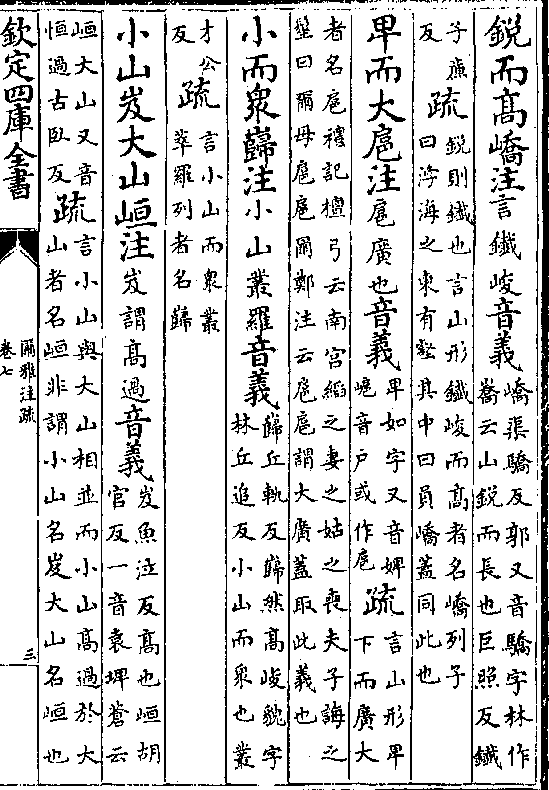 銳而髙嶠注言鑯峻音義嶠渠驕反郭又音驕字林作𡼲云山銳而長也巨照反鑯
子㢘反疏銳則鑯也言山形鑯峻而髙者名嶠列子曰浡海之東有壑其中曰員嶠蓋同此也
卑而大扈注扈廣也音義卑如字又音婢㟓音户或作扈疏言山形卑下而廣大
者名扈禮記檀弓云南宫縚之妻之姑之喪夫子誨之髽曰爾毋扈扈爾鄭注云扈扈謂大廣蓋取此義也
小而衆巋注小山叢羅音義巋丘軌反巋然髙峻貌字林丘追反小山而衆也叢
才公反疏言小山而衆叢萃羅列者名巋
小山岌大山峘注岌謂髙過音義岌魚泣反髙也峘胡官反一音袁埤蒼云
峘大山又音恒過古臥反疏言小山與大山相並而小山髙過於大山者名峘非謂小山名岌大山名峘也
欽定四庫全書
爾雅注疏
卷七
三